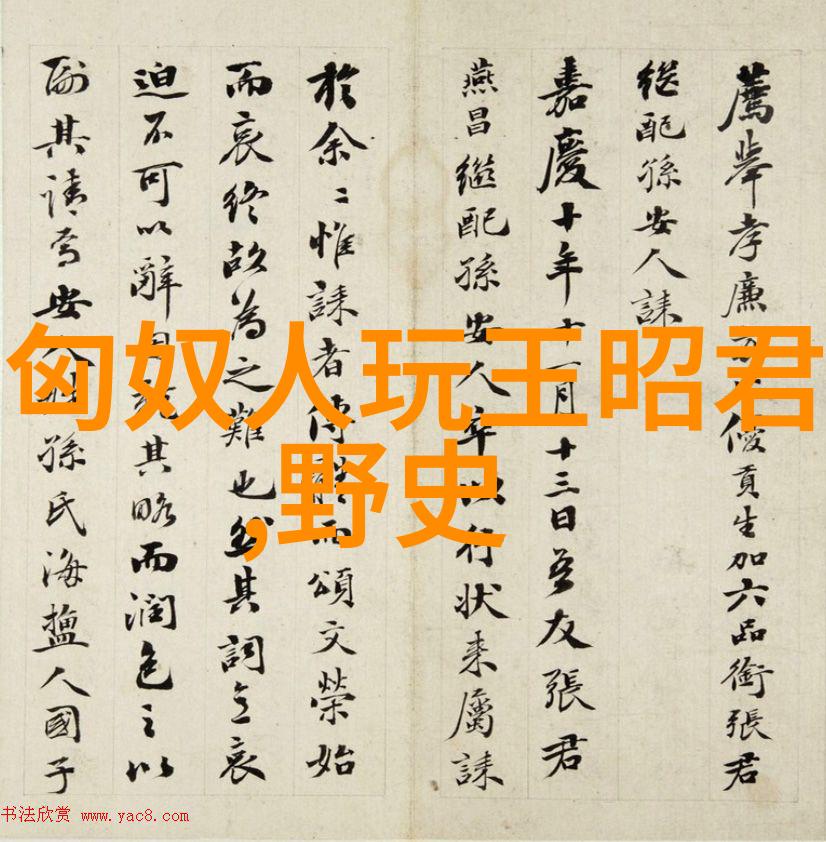 薦舉孝廉
優貢生加六品銜張君
繼配孫安人誄
嘉慶十年十一月十三日吾友張君
燕昌繼配孫安人卒以行狀來屬誄
於余〻惟誄者傳
而頌文榮始
而哀終故為之難也然其詞立哀
迫不可以辭
其略而潤色之以
副其請焉安人
孫氏海鹽人國子
匈奴人玩王昭君
,野史
书法欣赏 www.yac8.com